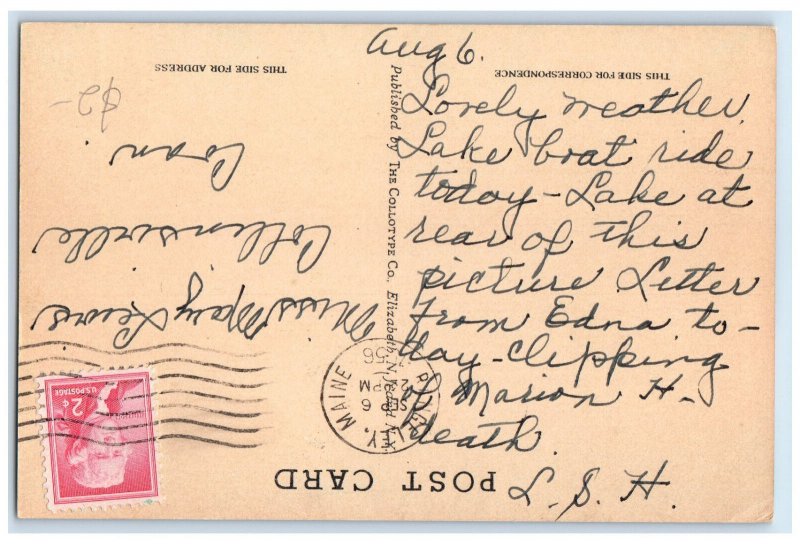 Aug 6.
Lovely weather.
Lake boat ride
today - Lake at
rear of this
picture Letter
from Edna to-
day - clipping
of Marion H-
death.
L. S. H.
THIS SIDE FOR CORRESPONDENCE
THIS SIDE FOR ADDRESS
Published by THE COLLOTYPE CO., Elizabeth, N.J. and N.Y.
POST CARD
Miss May Lewis
Collinsville
Conn.
$2-
MAINE
SEP 6
2 PM
1956
U.S. POSTAGE
2¢